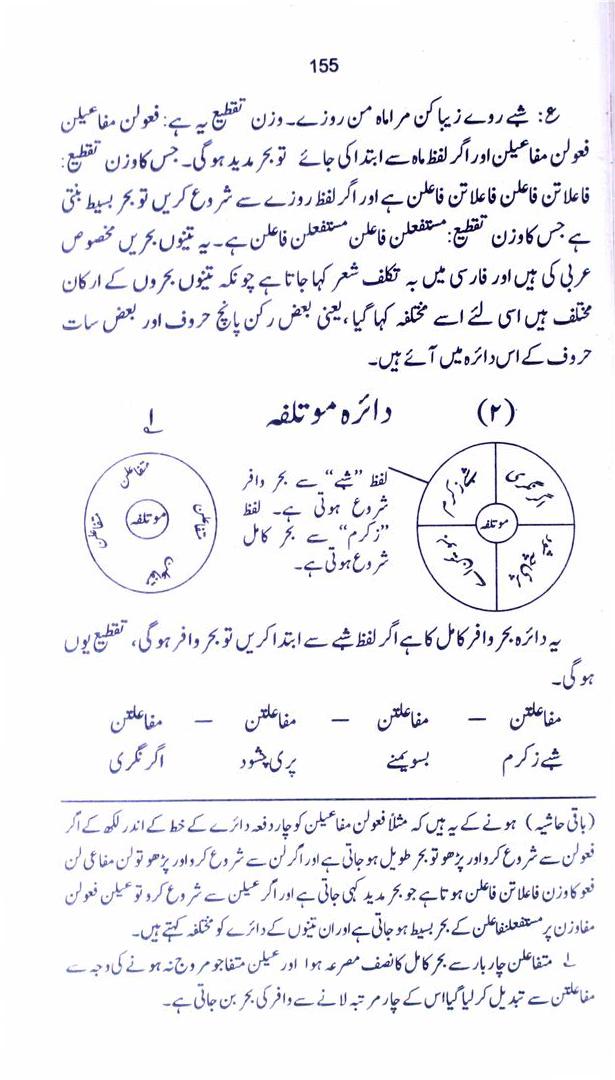 155
ع: شبے روے زیبا کن مرا ماہ من روزے۔ وزن تقطیع یہ ہے: فعولن مفاعیلن
فعولن مفاعیلن اور اگر لفظ ماہ سے ابتدا کی جائے تو بحر مدید ہوگی۔ جس کا وزن تقطیع:
فاعلاتن فاعلن فاعلاتن فاعلن ہے اور اگر لفظ روزے سے شروع کریں تو بحر بسیط بنتی
ہے جس کا وزن تقطیع: مستفعلن فاعلن مستفعلن فاعلن ہے۔ یہ تینوں بحریں مخصوص
عربی کی ہیں اور فارسی میں بہ تکلف شعر کہا جاتا ہے چونکہ تینوں بحروں کے ارکان
مختلف ہیں اسی لئے اسے مختلفہ کہا گیا، یعنی بعض رکن پانچ حروف اور بعض سات
حروف کے اس دائرہ میں آئے ہیں۔
(۲) دائرہ موتلفہ ۱؎
اگر نگری
شبے ز کرم
موتلفہ
لفظ ”شبے“ سے بحر وافر
شروع ہوتی ہے۔ لفظ
”زکرم“ سے بحر کامل
شروع ہوتی ہے۔
متفاعلن
متفاعلن
موتلفہ
متفاعلن
متفاعلن
یہ دائرہ بحر وافر کامل کا ہے اگر لفظ شبے سے ابتدا کریں تو بحر وافر ہوگی، تقطیع یوں
ہوگی۔
مفاعلتن – مفاعلتن – مفاعلتن – مفاعلتن
شبے ز کرم بسویمنے پری چشود اگر نگری
(باقی حاشیہ) ہونے کے یہ ہیں کہ مثلاً فعولن مفاعیلن کو چار دفعہ دائرے کے خط کے اندر لکھ کے اگر
فعولن سے شروع کرو اور پڑھو تو بحر طویل ہو جاتی ہے اور اگر لن سے شروع کرو اور پڑھو تو لن مفاعی لن
فعو کا وزن فاعلاتن فاعلن ہوتا ہے جو بحر مدید کہی جاتی ہے اور اگر عیلن سے شروع کرو تو عیلن فعولن
مفا وزن پر مستفعلنفاعلن کے بحر بسیط ہو جاتی ہے اور ان تینوں کے دائرے کو مختلفہ کہتے ہیں۔
۱؎ متفاعلن چار بار سے بحر کامل کا نصف مصرعہ ہوا اور عیلن متفا جو مروج نہ ہونے کی وجہ سے
مفاعلتن سے تبدیل کر لیا گیا اس کے چار مرتبہ لانے سے وافر کی بحر بن جاتی ہے۔